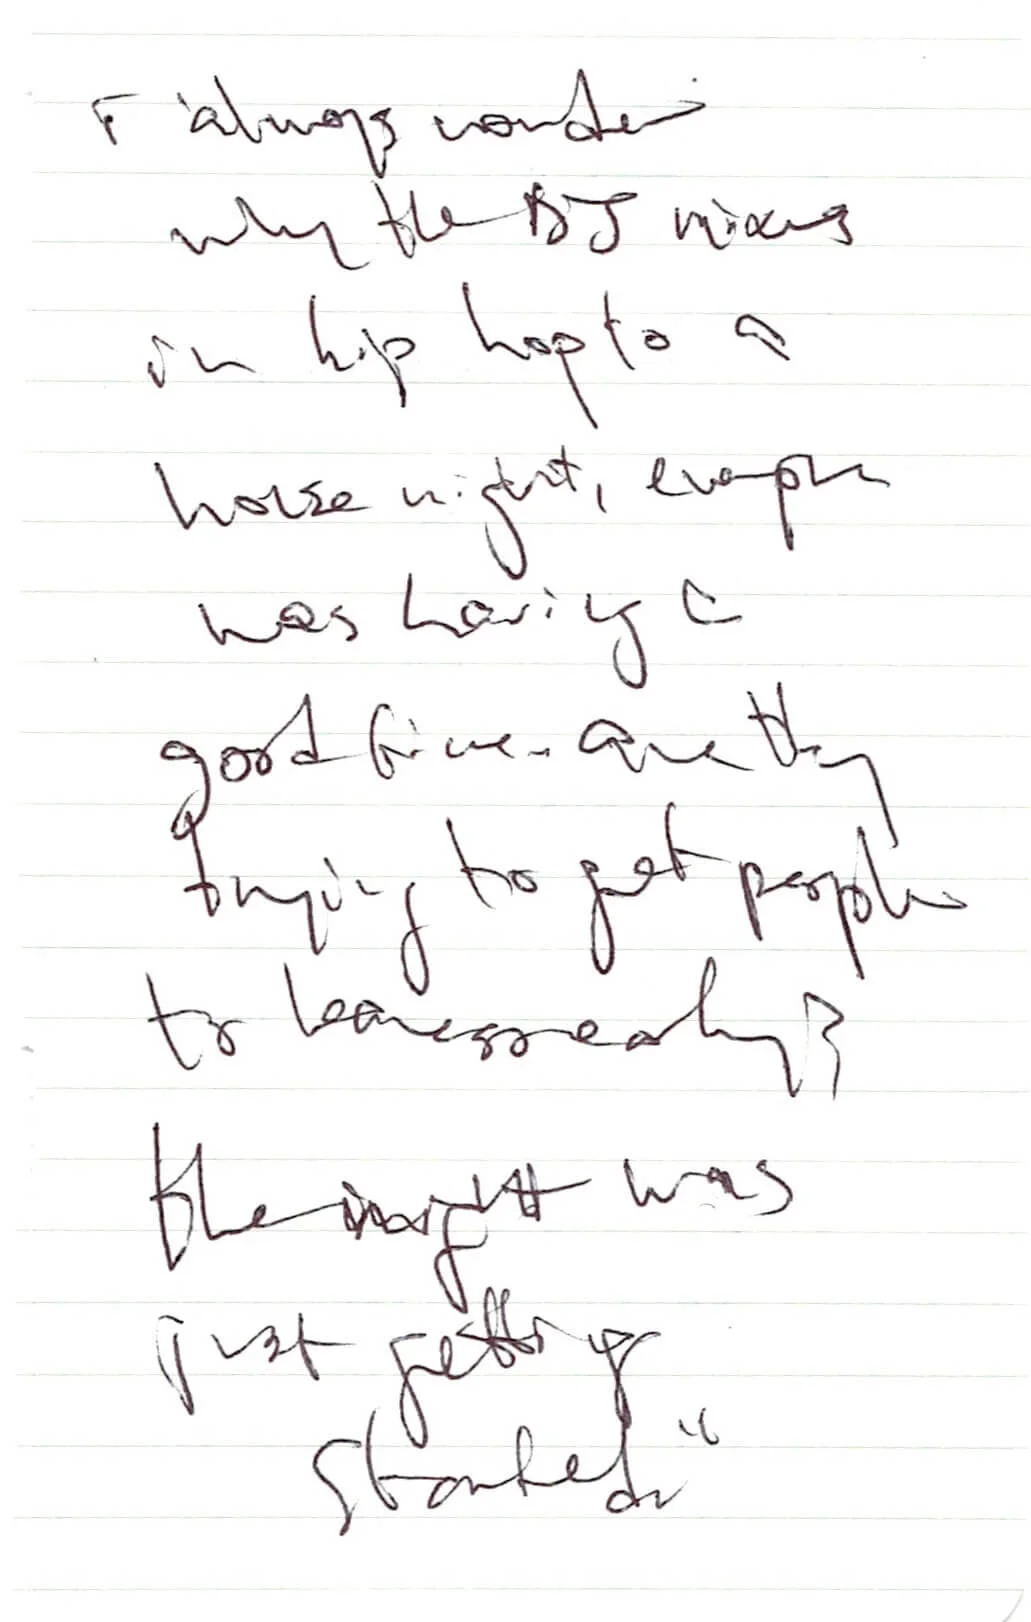 I always wonder
why the DJ mixes
in hip hop to a
house night, 
was having a
good time. Are they
trying to get people
to leave early?
the night was
just getting
started"